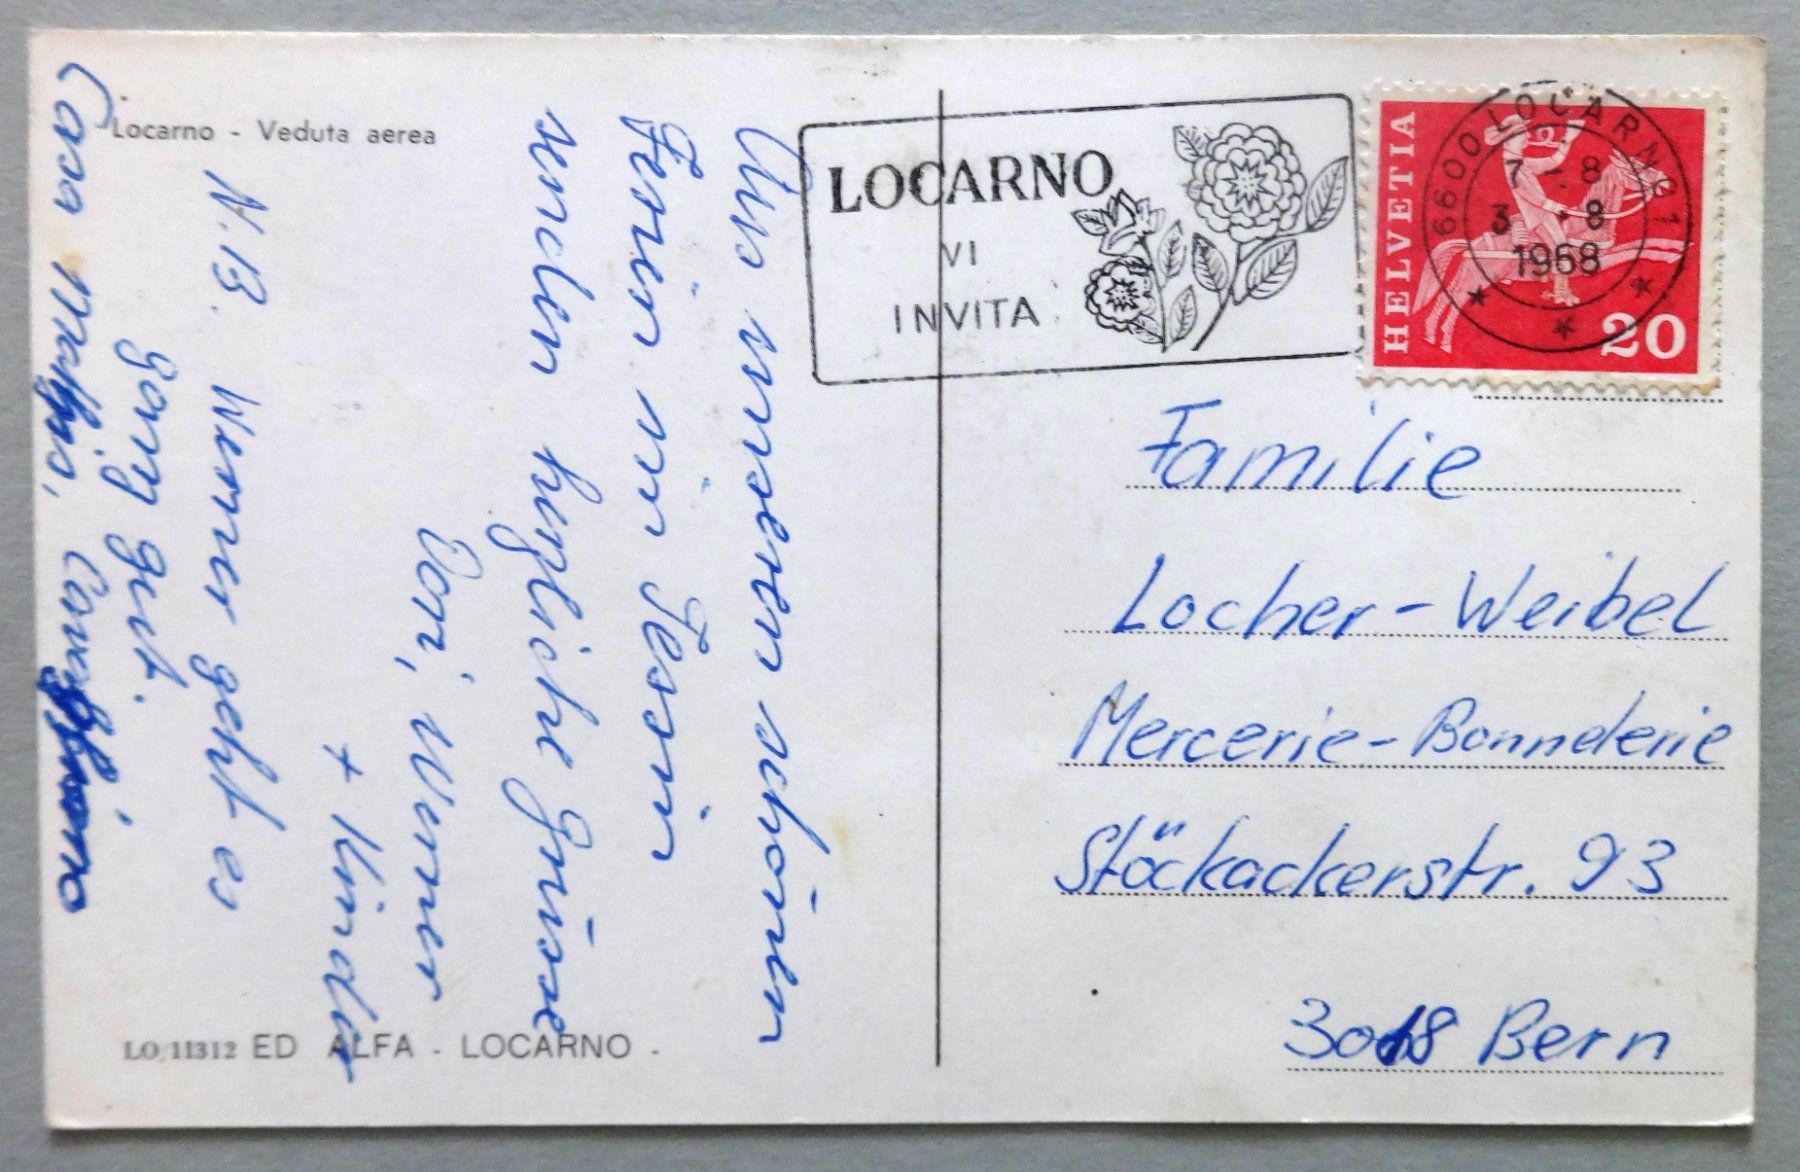 Locarno - Veduta aerea
Aus unseren schönen
Ferien im Tessin
senden herzliche Grüsse
Dori, Werner
+ Kinder
N.B. Werner geht es
ganz gut.
Casa
LO/11312 ED ALFA - LOCARNO -
LOCARNO
VI
INVITA
6600 LOCARNO 1
7 - 8
3 - 8
1968
HELVETIA
20
Familie
Locher-Weibel
Mercerie-Bonneterie
Stöckackerstr. 93
3018 Bern